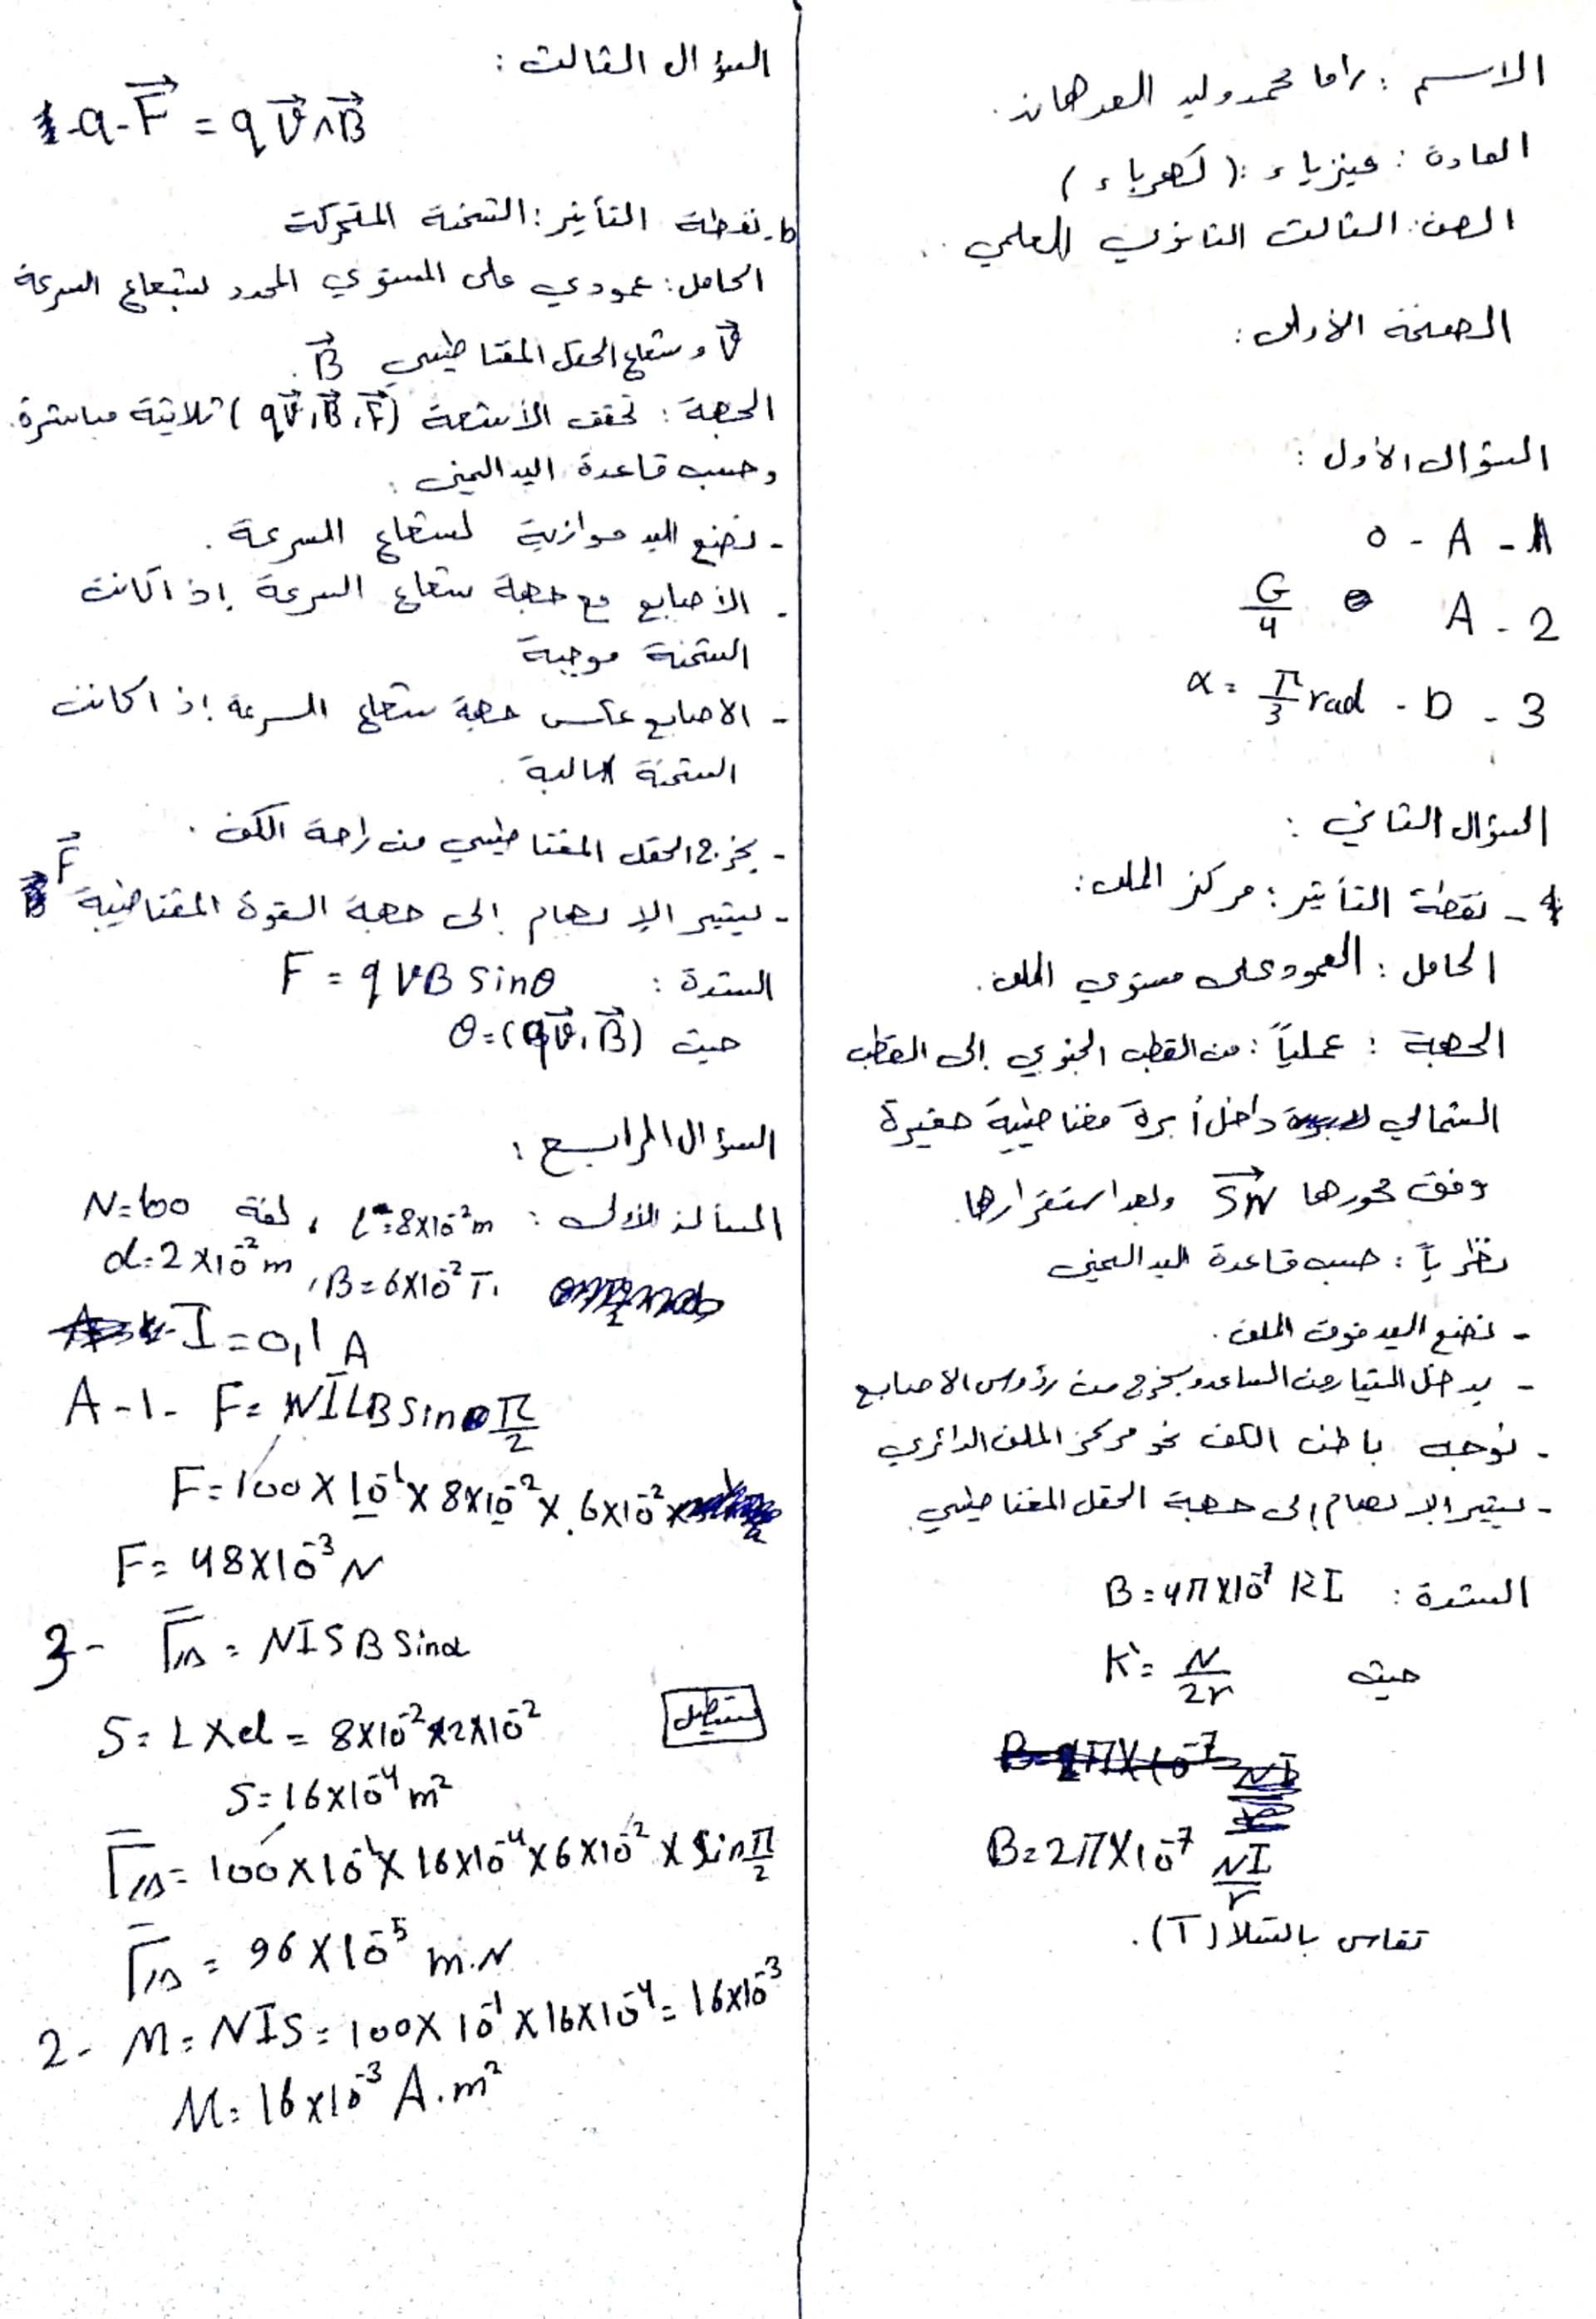 الاسم : راما محمد وليد
المادة : فيزياء : ( كهرباء )
الصف : الثالث الثانوي العلمي .
الصفحة الأولى :
السؤال الأول :
1 - A - 0
2 - A G/4
3 - D - α = π/3 rad
السؤال الثاني :
1 - نقطة التأثير : مركز الملف :
الحامل : العمود على مستوي الملف .
الجهة : عملياً : من القطب الجنوبي إلى القطب
الشمالي داخل أبرة مغناطيسية صغيرة
وفق محورها SN وبعد استقرارها .
نظرياً : حسب قاعدة اليد اليمنى
- نضع اليد فوق الملف .
- يدخل التيار من الساعد ويخرج من رؤوس الاصابع
- نوجه باطن الكف نحو مركز الملف الدائري
- يشير الإبهام إلى جهة الحقل المغناطيسي .
الشدة : B = 4π×10⁻⁷ K̀ I
حيث K̀ = N/2r
B = 2π×10⁻⁷ NI/r
تقاس بالتسلا (T) .
السؤال الثالث :
1-a- F⃗ = q v⃗ ∧ B⃗
b. نقطة التأثير : الشحنة المتحركة
الحامل : عمودي على المستوي المحدد بشعاع السرعة
v⃗ و شعاع الحقل المغناطيسي B⃗ .
الجهة : تحقق الأشعة (q v⃗ , B⃗ , F⃗) ثلاثية مباشرة .
وحسب قاعدة اليد اليمنى :
- نضع اليد موازية لشعاع السرعة .
- الأصابع مع جهة شعاع السرعة إذا كانت
الشحنة موجبة
- الاصابع عكس جهة شعاع السرعة إذا كانت
الشحنة سالبة .
- يخرج الحقل المغناطيسي من راحة الكف .
- يشير الإبهام إلى جهة القوة المغناطيسية F⃗
الشدة : F = q v B sinθ
حيث θ = (q v⃗ , B⃗)
السؤال الرابع :
المسألة الأولى : L = 8×10⁻² m ، لفة N = 100
d = 2×10⁻² m , B = 6×10⁻² T .
I = 0,1 A
A - 1 - F = N I L B sin π/2
F = 100 × 10⁻¹ × 8×10⁻² × 6×10⁻² × 1
F = 48×10⁻³ N
3 - Γ̅/Δ = N I S B sinα
S = L × d = 8×10⁻² × 2×10⁻² مستطيل
S = 16×10⁻⁴ m²
Γ̅/Δ = 100 × 10⁻¹ × 16×10⁻⁴ × 6×10⁻² × sin π/2
Γ̅/Δ = 96×10⁻⁵ m.N
2 - M = N I S = 100 × 10⁻¹ × 16×10⁻⁴ = 16×10⁻³
M = 16×10⁻³ A.m²